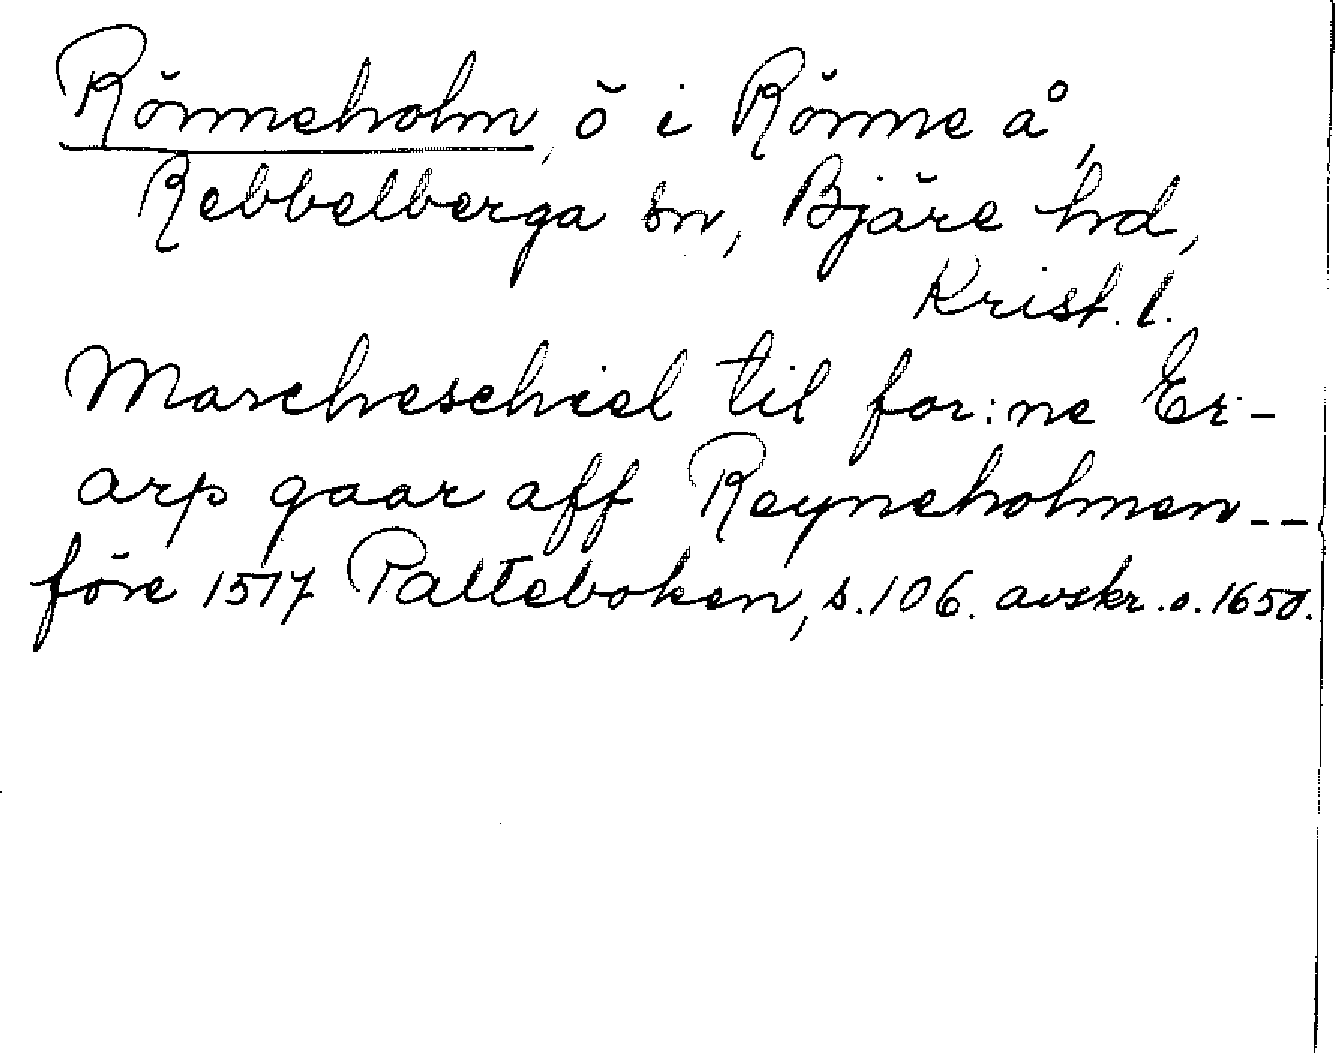 Rönneholm, ö i Rönne å,
Rebbelberga sn, Bjäre hd,
Krist. l.
Marcheschiel til for:ne Er-
arp gaar aff Reyneholmen --
före 1517 Palteboken, s. 106. avskr. o. 1650.